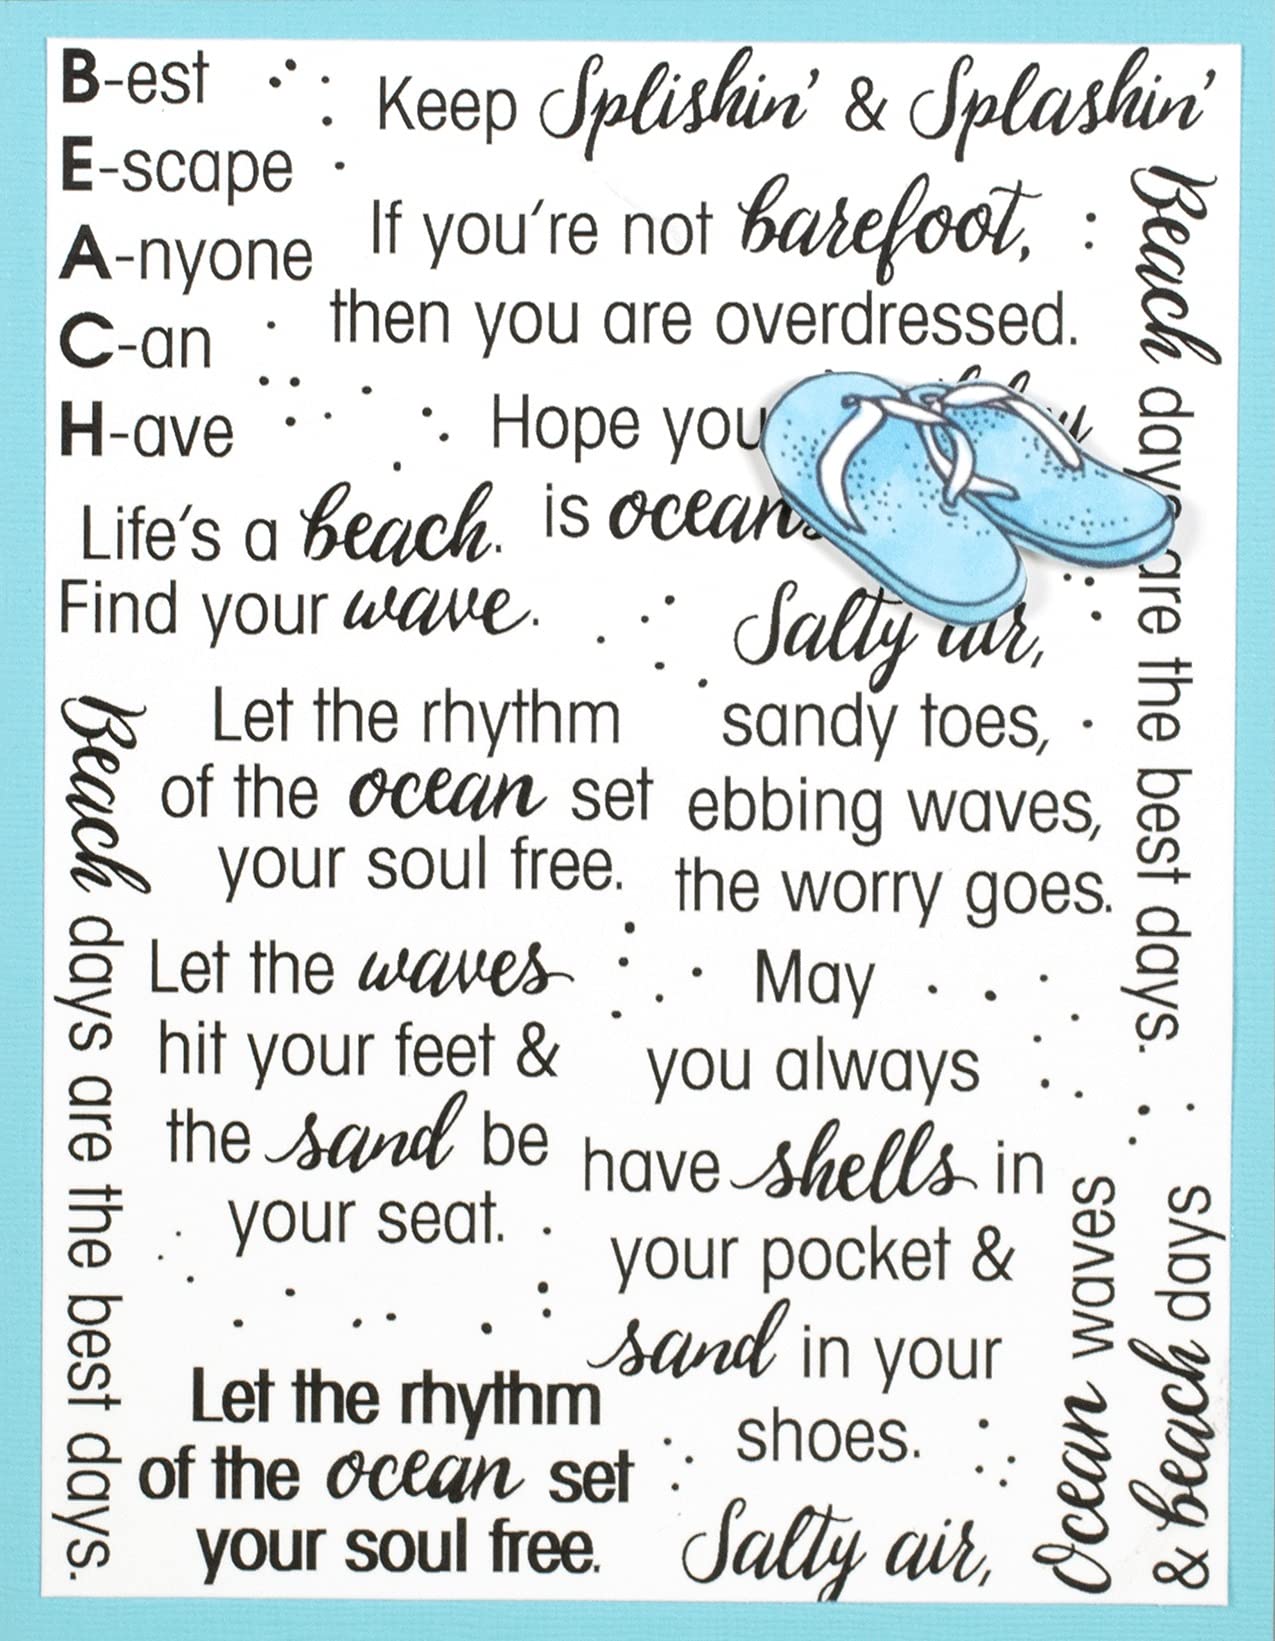 B-est
E-scape
A-nyone
C-an
H-ave
Keep Splishin' & Splashin'
If you're not barefoot,
then you are overdressed.
Hope you
is oceans
Life's a beach.
Find your wave.
Salty air,
sandy toes,
ebbing waves,
the worry goes.
Beach days are the best days.
Let the rhythm
of the ocean set
your soul free.
Beach days are the best days.
Let the waves
hit your feet &
the sand be
your seat.
May
you always
have shells in
your pocket &
sand in your
shoes.
Let the rhythm
of the ocean set
your soul free.
Salty air,
Ocean waves
& beach days